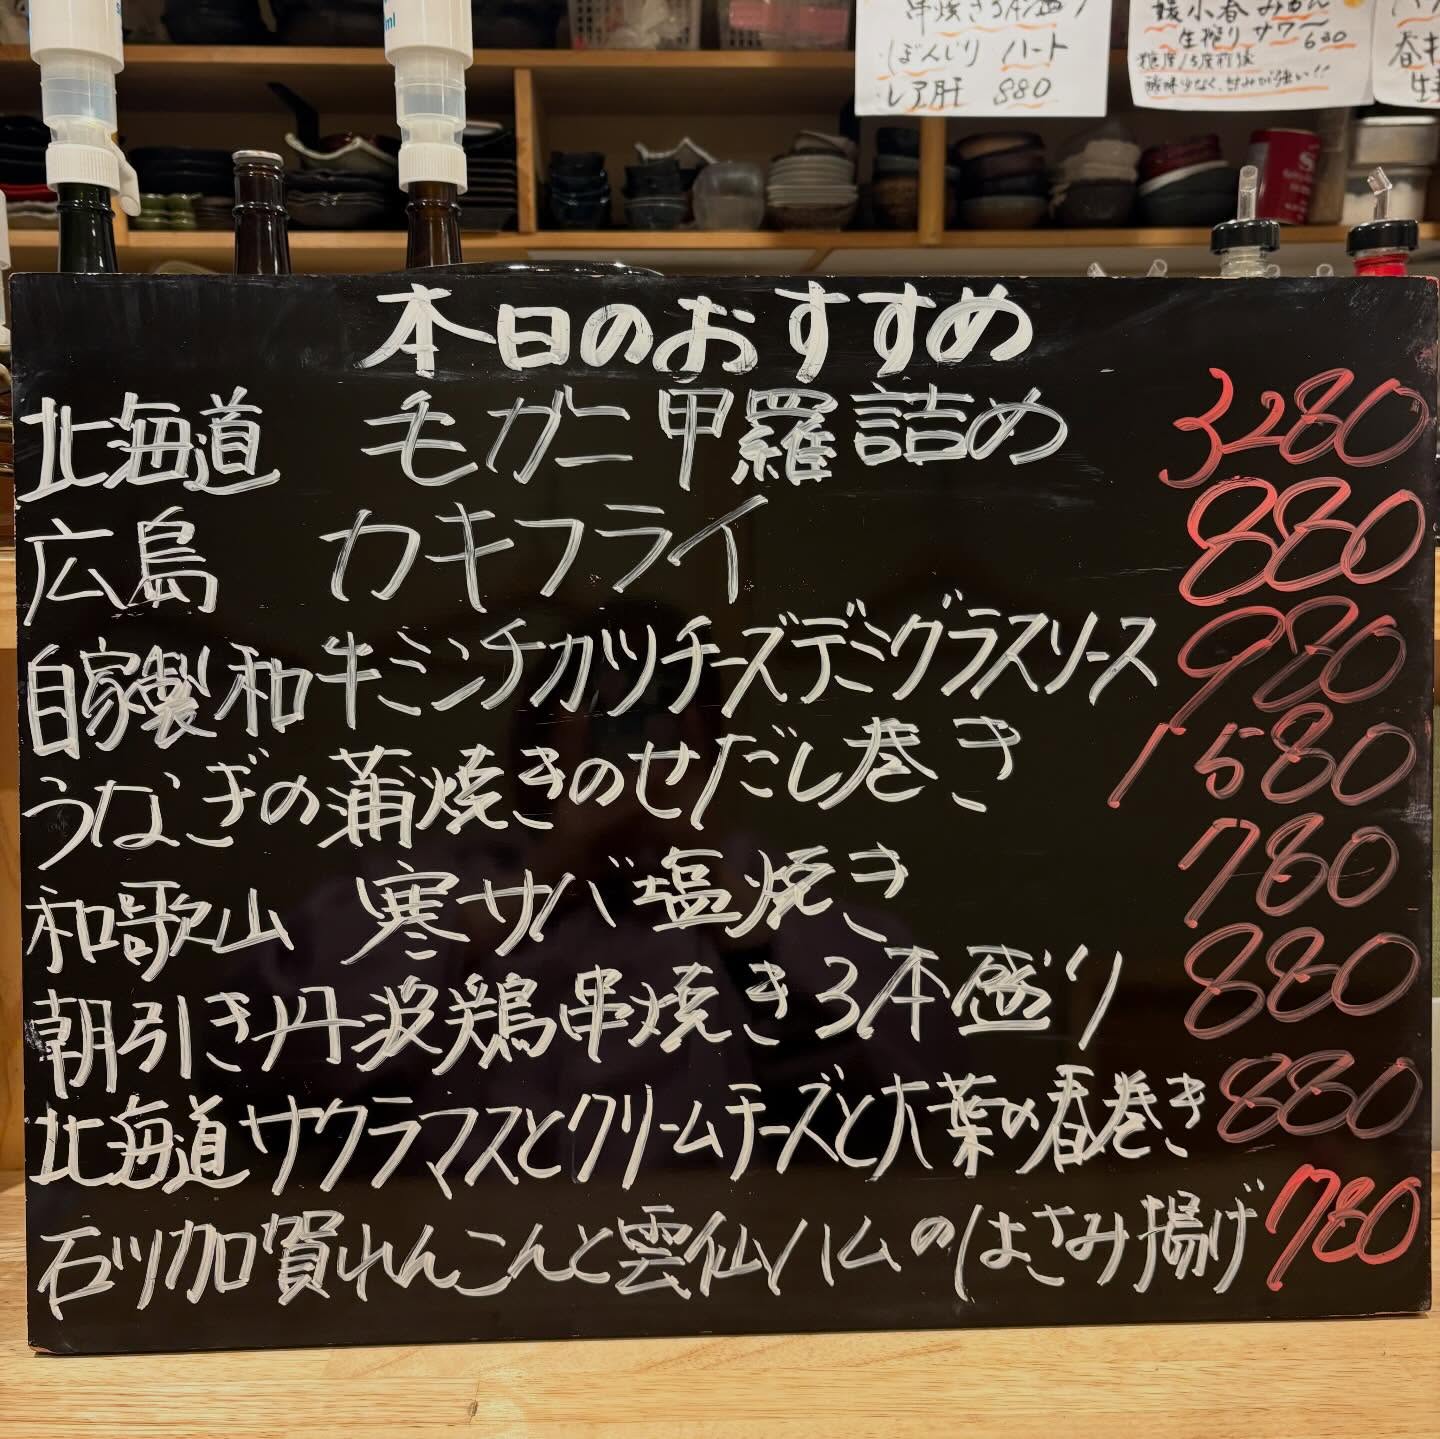 ml
串焼き3本盛り
ぼんじり ハート
レア肝 880
小春みかん
生搾りサワー 680
糖度13度前後
酸味少なく、甘みが強い!!
本日のおすすめ
北海道 毛ガニ甲羅詰め 3280
広島 カキフライ 880
自家製和牛ミンチカツチーズデミグラスソース 980
うなぎの蒲焼きのせだし巻き 1580
和歌山 寒サバ塩焼き 780
朝引き丹波鶏串焼き3本盛り 880
北海道サクラマスとクリームチーズと大葉の春巻き 880
石ツ加賀れんこんと雲仙ハムのはさみ揚げ 780